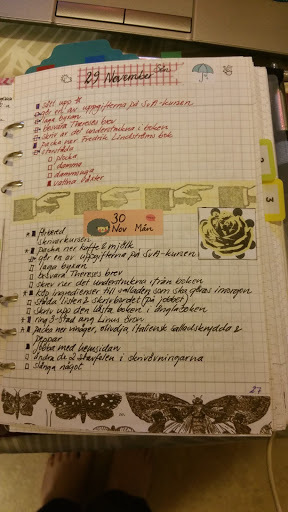 29 November Sön
■ Sätt upp
gör en av uppgifterna på SvA-kursen
□ laga byxan
□ besvara Thereses brev
□ Skriv av det understrukna i boken
■ packa ner Fredrik Lindströms bok
□ storstäda
□ plocka
□ damma
□ dammsuga
■ vattna växter
30
Nov Mån
förbered
skrivarkursen
■ packa ner kaffe & mjölk
gör en av uppgifterna på SvA-kursen
□ laga byxan
□ besvara Thereses brev
□ skriv ner det understrukna ifrån boken
■ köp ingredienser till salladen som ska göras imorgon
□ städa listen & skrivbordet (på jobbet)
□ skriv upp den lästa boken i
■ ring 3-Stad ang Linus lön
■ packa ner vinäger, olivolja, italiensk salladskrydda &
peppar
■ jobba med hemsidan
□ ändra de 2 stavfelen i skrivövningarna
□ slänga något
27